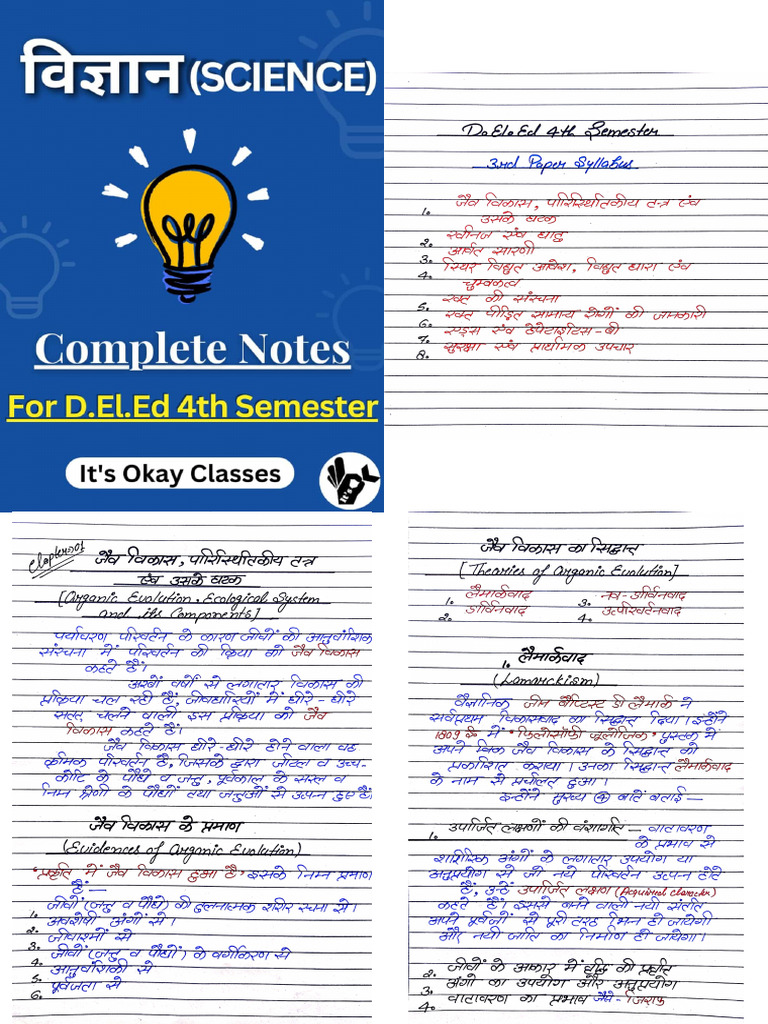 विज्ञान (SCIENCE)
Complete Notes
For D.El.Ed 4th Semester
It's Okay Classes
D.El.Ed 4th Semester
3rd Paper Syllabus
1. जैव विकास, पारिस्थितिकीय तन्त्र एंव
उसके घटक
2. खनीज एंव धातु
3. आर्वत सारणी
4. स्थिर विद्युत आवेश, विद्युत धारा एंव
चुम्बकत्व
5. रक्त की संरचना
6. रक्त पीड़ित सामान्य रोगों की जानकारी
7. एड्स एंव हेपेटाईटस-बी
8. सुरक्षा एंव प्रार्थामक उपचार
Chapter:01
जैव विकास, पारिस्थितिकीय तन्त्र
एंव उसके घटक
[Organic Evolution, Ecological System
and its Components]
पर्यावरण परिवर्तन के कारण जीवों की आनुवांशिक
संरचना में परिवर्तन की क्रिया को जैव विकास
कहते हैं।
अरबों वर्षों से लगातार विकास की
प्रक्रिया चल रही है, जीवधारियों में धीरे-धीरे
सतत् चलने वाली इस प्रक्रिया को जैव
विकास कहते हैं।
जैव विकास धीरे-धीरे होने वाला वह
क्रमिक परिवर्तन है, जिसके द्वारा जटिल व उच्च-
कोटि के पौधे व जन्तु, पूर्वकाल के सरल व
निम्न श्रेणी के पौधों तथा जन्तुओं से उत्पन्न हुए हैं।
जैव विकास के प्रमाण
(Evidences of Organic Evolution)
"प्रकृति में जैव विकास हुआ है" इसके निम्न प्रमाण
हैं—
1. जीवों (जन्तु व पौधे) की तुलनात्मक शरीर रचना से।
2. अवशेषी अंगों से।
3. जीवाश्मों से
4. जीवों (जन्तु व पौधों) के वर्गीकरण से
5. आनुवांशिकी से
6. पूर्वजता से
जैव विकास का सिद्धान्त
[Theories of Organic Evolution]
1. लैमार्कवाद 3. नव-डार्विनवाद
2. डार्विनवाद 4. उत्परिवर्तनवाद
1. लैमार्कवाद
(Lamarckism)
वैज्ञानिक जीन बैप्टिस्ट डी लैमार्क ने
सर्वप्रथम विकासवाद का सिद्धान्त दिया। इन्होंने
1809 ई० में "फिलोसॉफी जूलोजिक" पुस्तक में
अपने जैव विकास के सिद्धान्त को
प्रकाशित कराया। उनका सिद्धान्त लैमार्कवाद
के नाम से प्रचलित हुआ।
इन्होंने मुख्य 4 बातें बताई—
1. उपार्जित लक्षणों की वंशागति — वातावरण
के प्रभाव से
शारीरिक अंगों के लगातार उपयोग या
अनुप्रयोग से जो नये परिवर्तन उत्पन्न होते
हैं, उन्हें उपार्जित लक्षण (Acquired character)
कहते हैं। इससे बनने वाली नयी संतति
अपने पूर्वजों से पूरी तरह भिन्न हो जायेगी
और नयी जाति का निर्माण हो जायेगा।
2. जीवों के आकार में वृद्धि की प्रवृति
3. अंगों का उपयोग और अनुप्रयोग
4. वातावरण का प्रभाव जैसे - जिराफ़